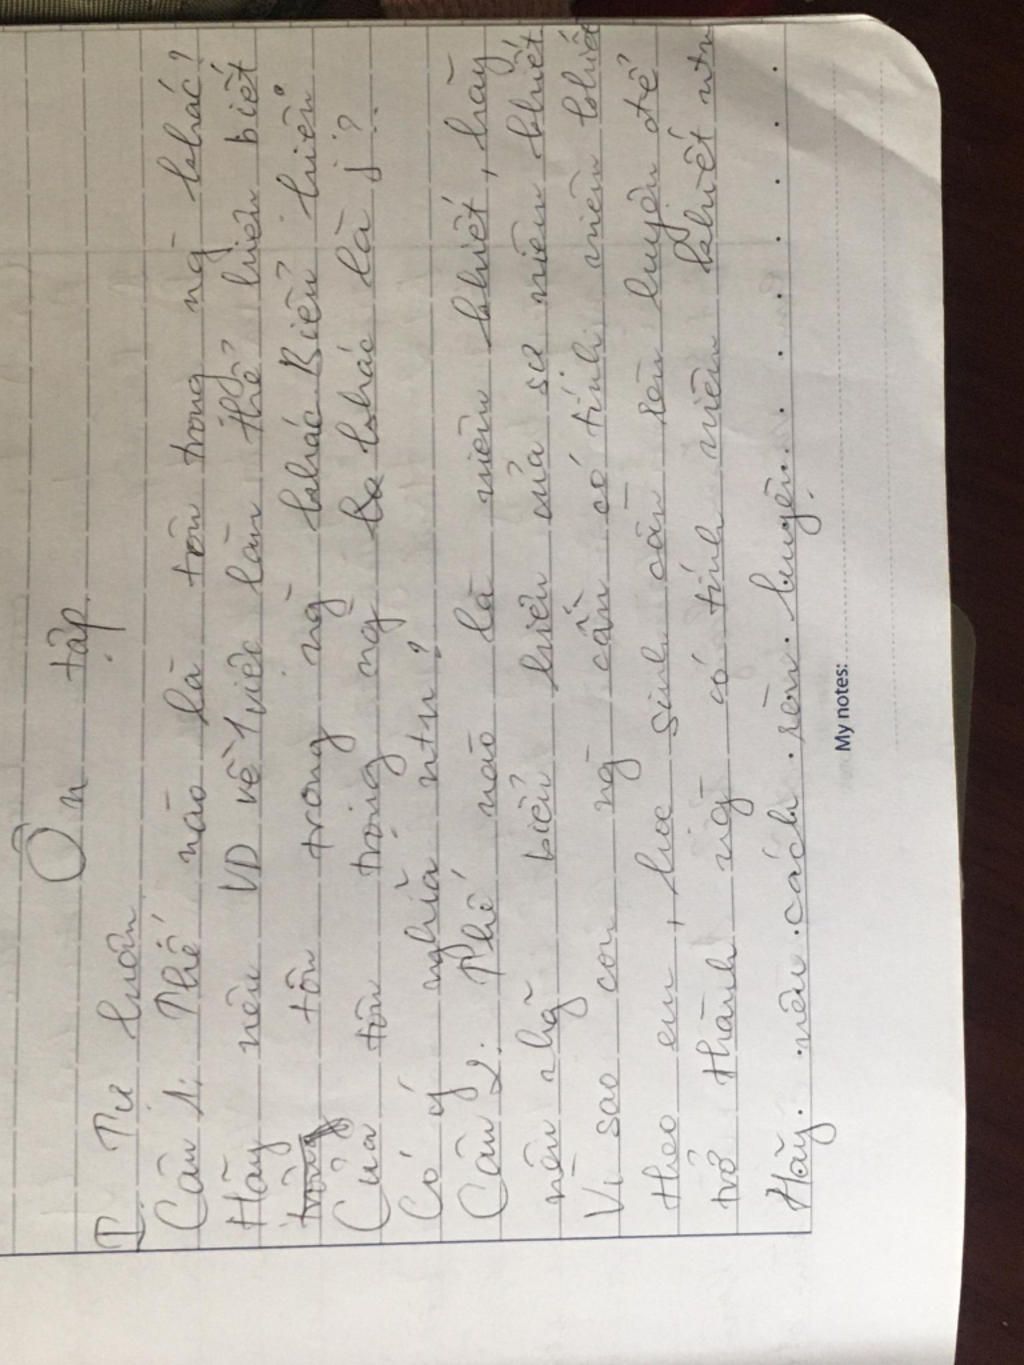 Ôn tập.
I. Tự luận
Câu 1: Thế nào là tôn trọng ng̀ khác?
Hãy nêu VD về 1 việc làm thể hiện biết
tôn trọng ng̀ khác. Biểu hiện
Của tôn trọng ng̀ khác là j?
Có ý nghĩa ntn?
Câu 2. Thế nào là niêm khiết, hãy
nêu nhg̃ biểu hiện của sa niêm khiết
Vì sao con ng̀ cần có tính niêm khiết
theo em, học sinh cần rèn luyện để
trở thành ng̀ có tính niêm khiết ntn
Hãy nêu cách rèn luyện.
My notes: